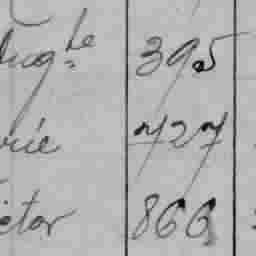 Aug.le 395
rie 727
ictor 866